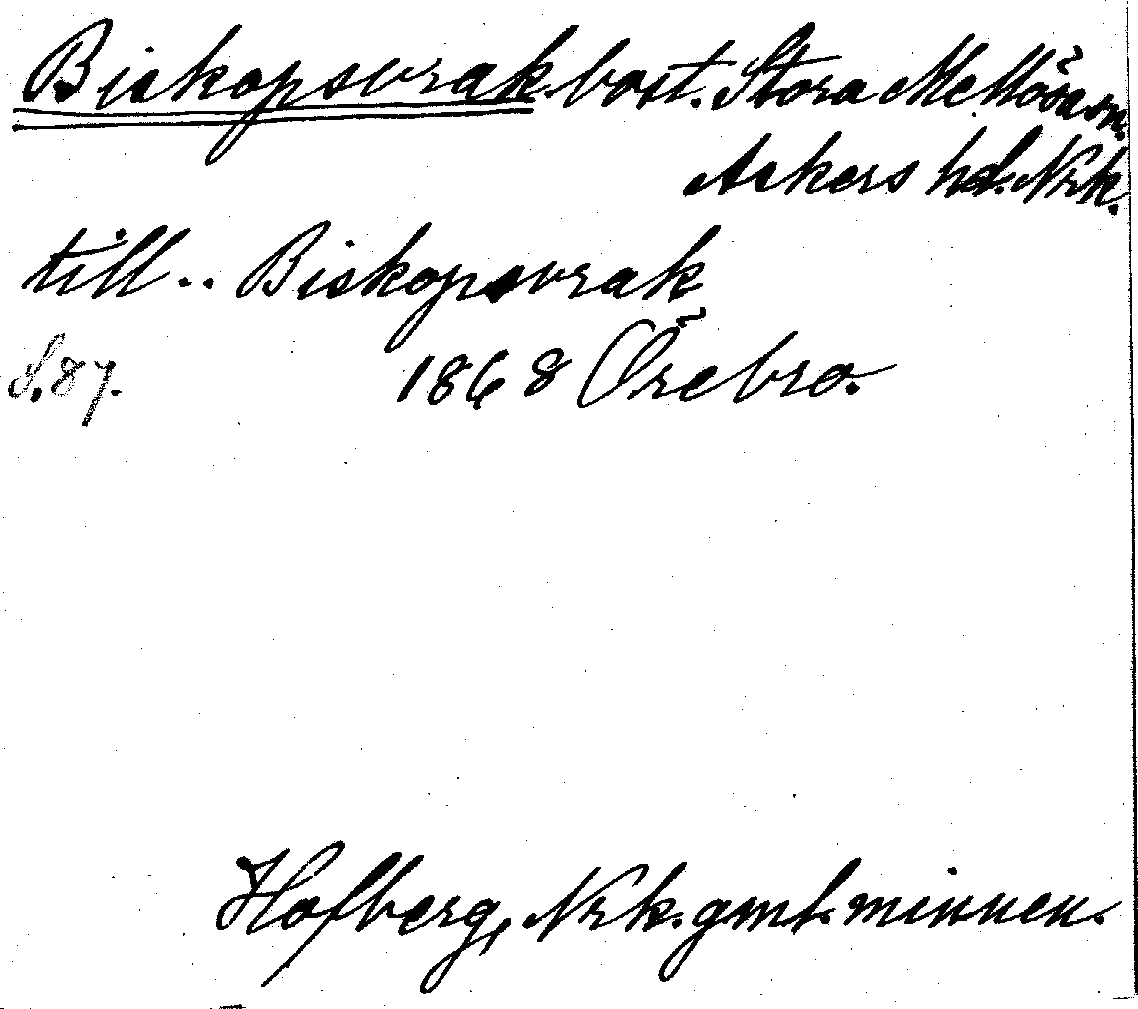 Biskopsvrak. bost. Stora Mellösa sn.
Askers hd. Nrk.
till.. Biskopsvrak
S. 87. 1868 Örebro.
Hofberg, Nrk. gml. minnen.